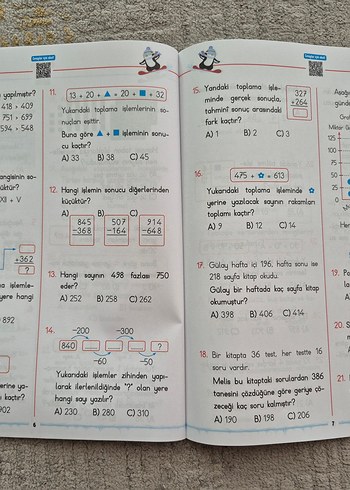 yapılmıştır?
418 > 409
751 > 699
594 > 548
+362
?
892
902
11. 13 + 20 + ▲ = 20 + ■ + 32
Yukarıdaki toplama işlemlerinin so-
nuçları eşittir.
Buna göre ▲ + ■ işleminin sonu-
cu kaçtır?
A) 33 B) 38 C) 45
12. Hangi işlemin sonucu diğerlerinden
küçüktür?
A) B) C)
845 507 914
−368 −164 −648
13. Hangi sayının 498 fazlası 750
eder?
A) 252 B) 258 C) 262
14.
−200 −300
840 ?
−60 −50
Yukarıdaki işlemler zihinden yapı-
larak ilerlenildiğinde "?" olan yere
hangi sayı yazılır?
A) 230 B) 280 C) 310
6
15. Yandaki toplama işle-
minde gerçek sonuçla,
tahminî sonuç arasındaki
fark kaçtır?
327
+264
A) 1 B) 2 C) 3
16. 475 + ✿ + 613
Yukarıdaki toplama işleminde ✿
yerine yazılacak sayının rakamları
toplamı kaçtır?
A) 9 B) 12 C) 14
17. Gülay hafta içi 196, hafta sonu ise
218 sayfa kitap okudu.
Gülay bir haftada kaç sayfa kitap
okumuştur?
A) 398 B) 406 C) 414
18. Bir kitapta 36 test, her testte 16
soru vardır.
Melis bu kitaptaki sorulardan 386
tanesini çözdüğüne göre geriye çö-
zeceği kaç soru kalmıştır?
A) 190 B) 198 C) 206
7
125
100
75
50
25
0
19.
20.
21.